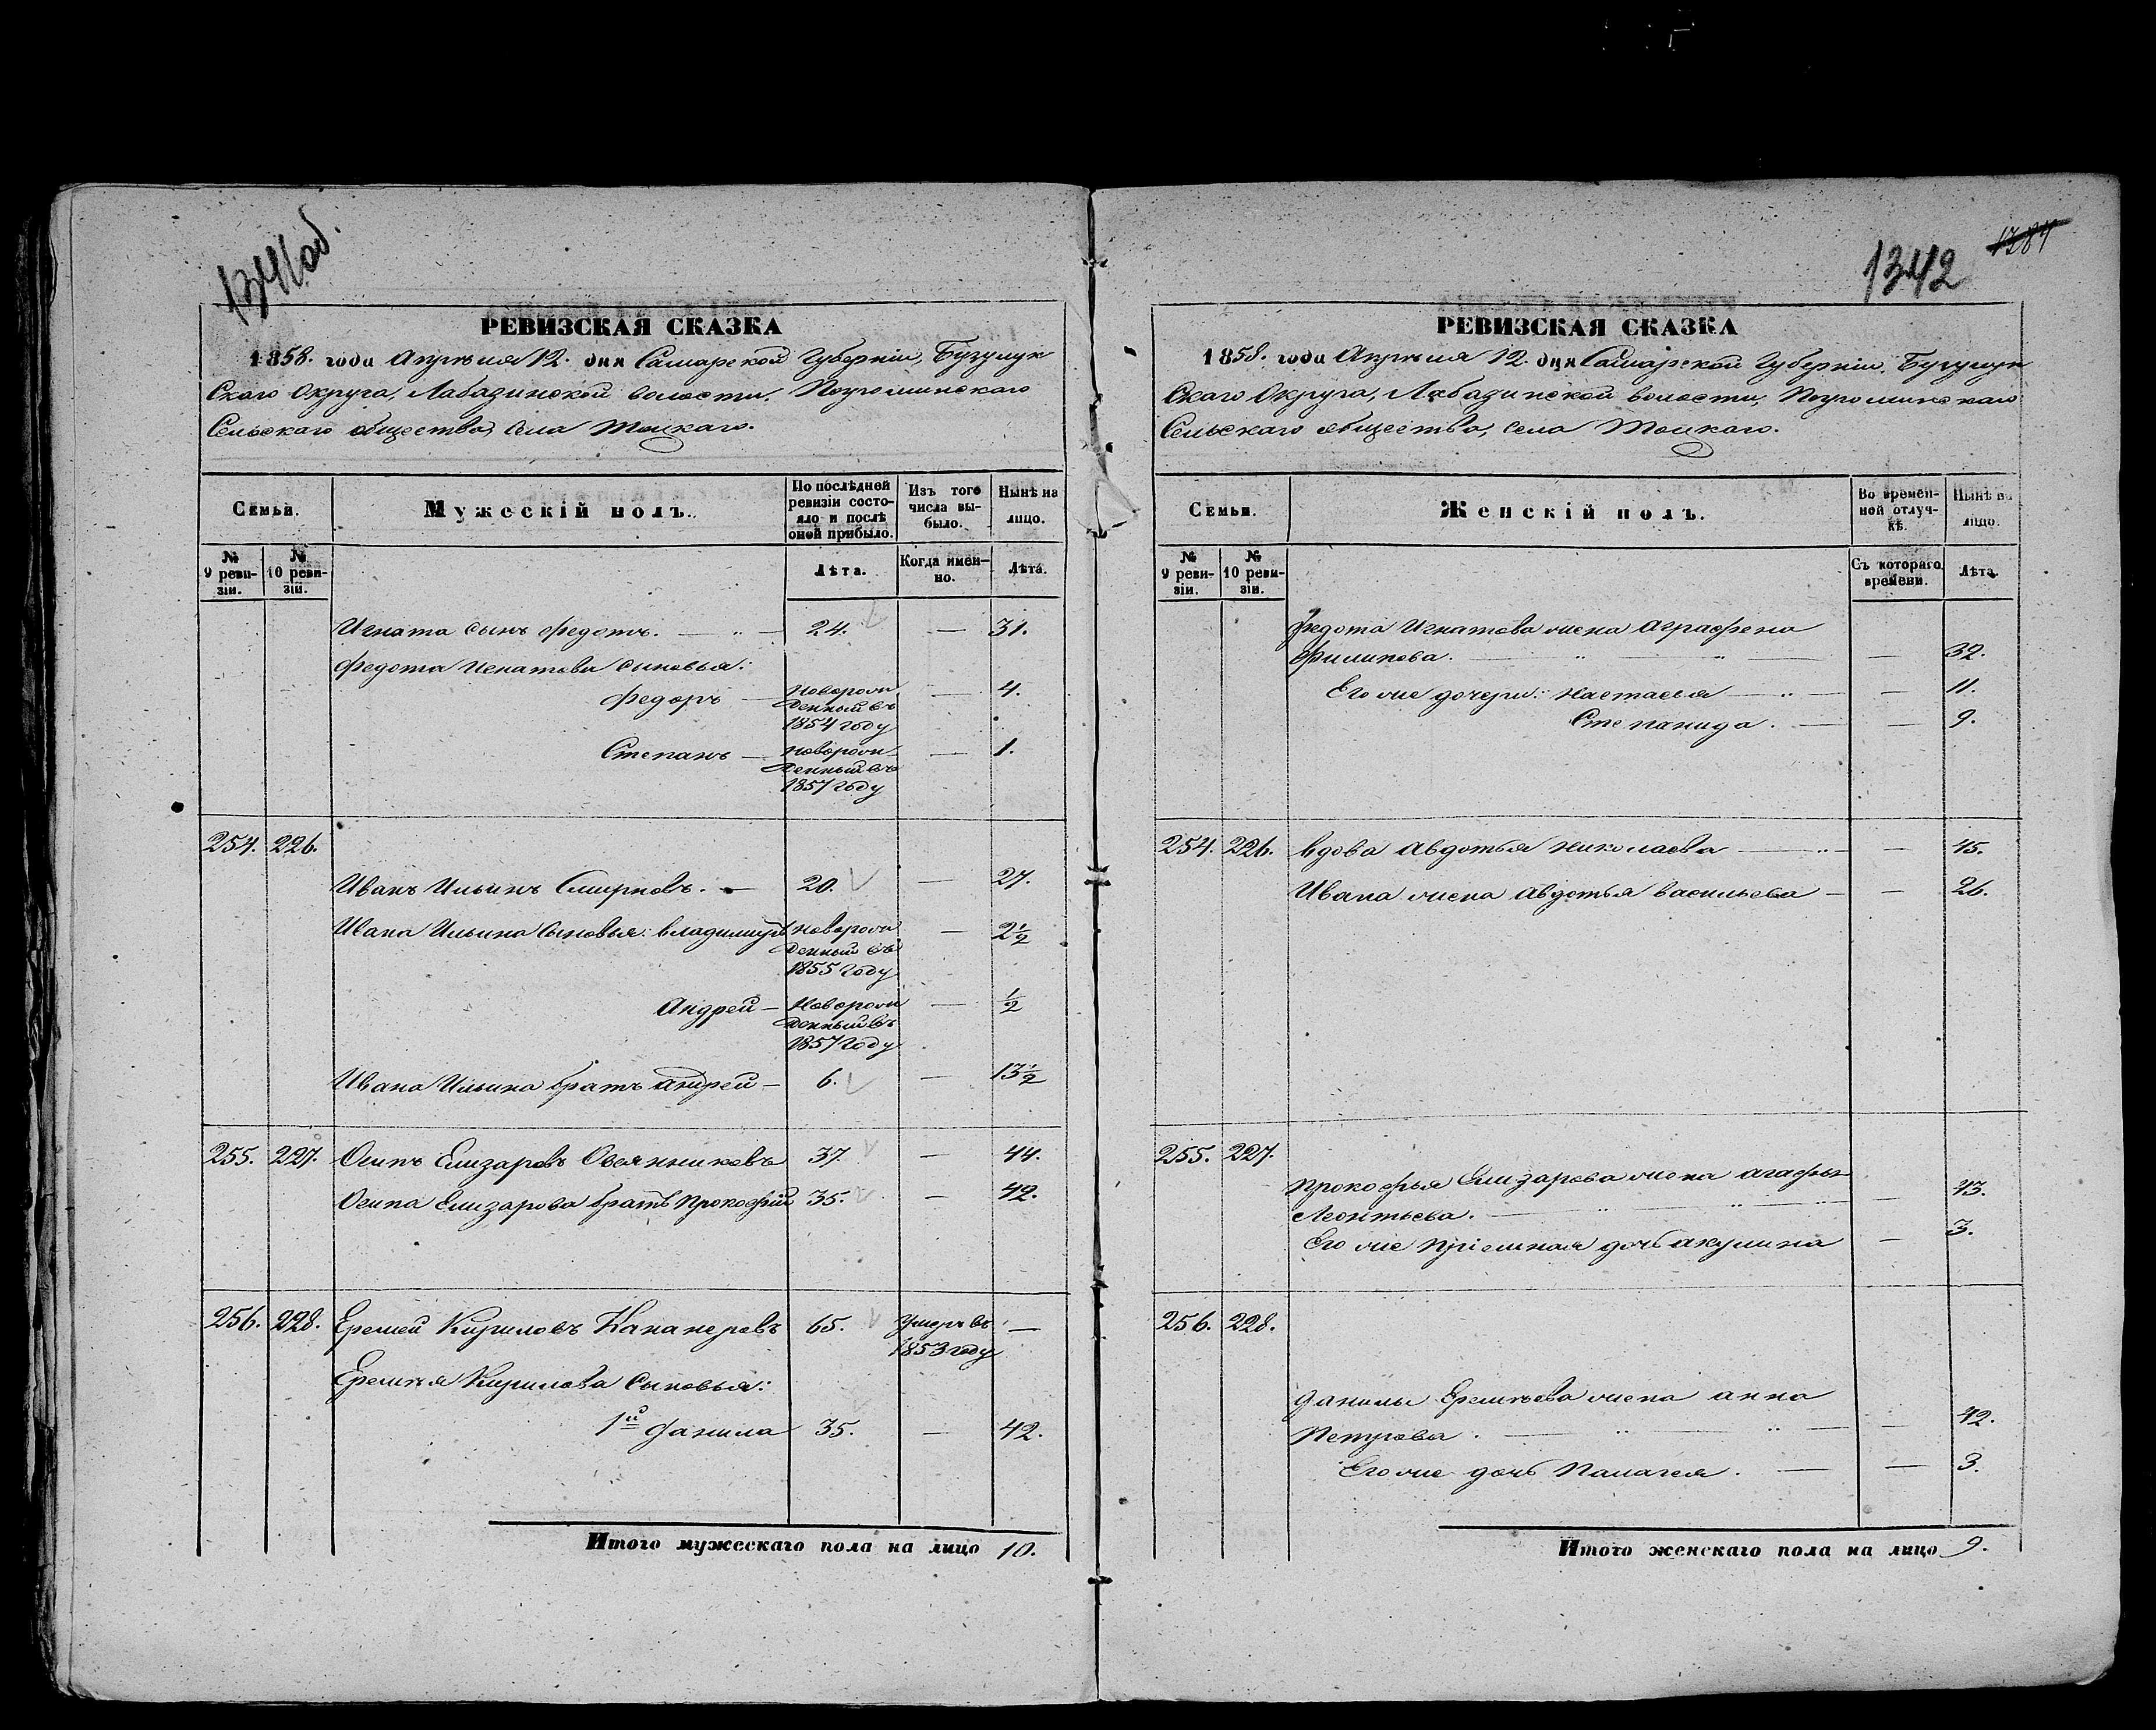 1341об.
РЕВИЗСКАЯ СКАЗКА
1858. года Апрѣля 12. дня Самарской Губерніи, Бузулук
скаго Округа, Лабазинской волости, Погроминскаго
Сельскаго общества, села Тоцкаго.
Семьи. Мужескій полъ. По послѣдней ревизіи состояло и послѣ оной прибыло. Изъ того числа выбыло. Нынѣ на лицо.
№ 9 ревизіи. № 10 ревизіи. Лѣта. Когда именно. Лѣта.
Игната сынъ Федотъ. — 24. — 31.
Федота Игнатова сыновья:
Федоръ — новорожденный въ 1854 году — 4.
Степанъ — новорожденный въ 1857 году — 1.
254. 226.
Иванъ Ильинъ Смирновъ. — 20. — 27.
Ивана Ильина сыновья: Владимиръ новорожденный въ 1855 году — 2½
Андрей — новорожденный въ 1857 году — ½
Ивана Ильина братъ Андрей — 6. — 13½
255. 227. Осипъ Елизаровъ Овсянниковъ 37. — 44.
Осипа Елизарова братъ Прокофій 35. — 42.
256. 228. Еремей Кириловъ Канаперовъ 65. Умеръ въ 1853 году —
Еремѣя Кирилова сыновья:
1й Данила 35. — 42.
Итого мужескаго пола на лицо 10.
1342 1784
РЕВИЗСКАЯ СКАЗКА
1858. года Апрѣля 12. дня Самарской Губерніи, Бузулук
скаго Округа, Лабазинской волости, Погроминскаго
Сельскаго общества, села Тоцкаго.
Семьи. Женскій полъ. Во временной отлучкѣ. Нынѣ на лицо.
№ 9 ревизіи. № 10 ревизіи. Съ котораго времени. Лѣта.
Федота Игнатова жена Аграфена
Филипова. — — 32.
Его же дочери: Настасья — — 11.
Степанида. — — 9.
254. 226. Вдова Авдотья Николаева — — 45.
Ивана жена Авдотья Васильева — — 26.
255. 227.
Прокофья Елизарова жена Агафья
Леонтьева. — — 43.
Его же пріемная дочь Акулина — 3.
256. 228.
Данилы Еремѣева жена Анна
Петрова. — — 42.
Его же дочь Палагея. — — 3.
Итого женскаго пола на лицо 9.